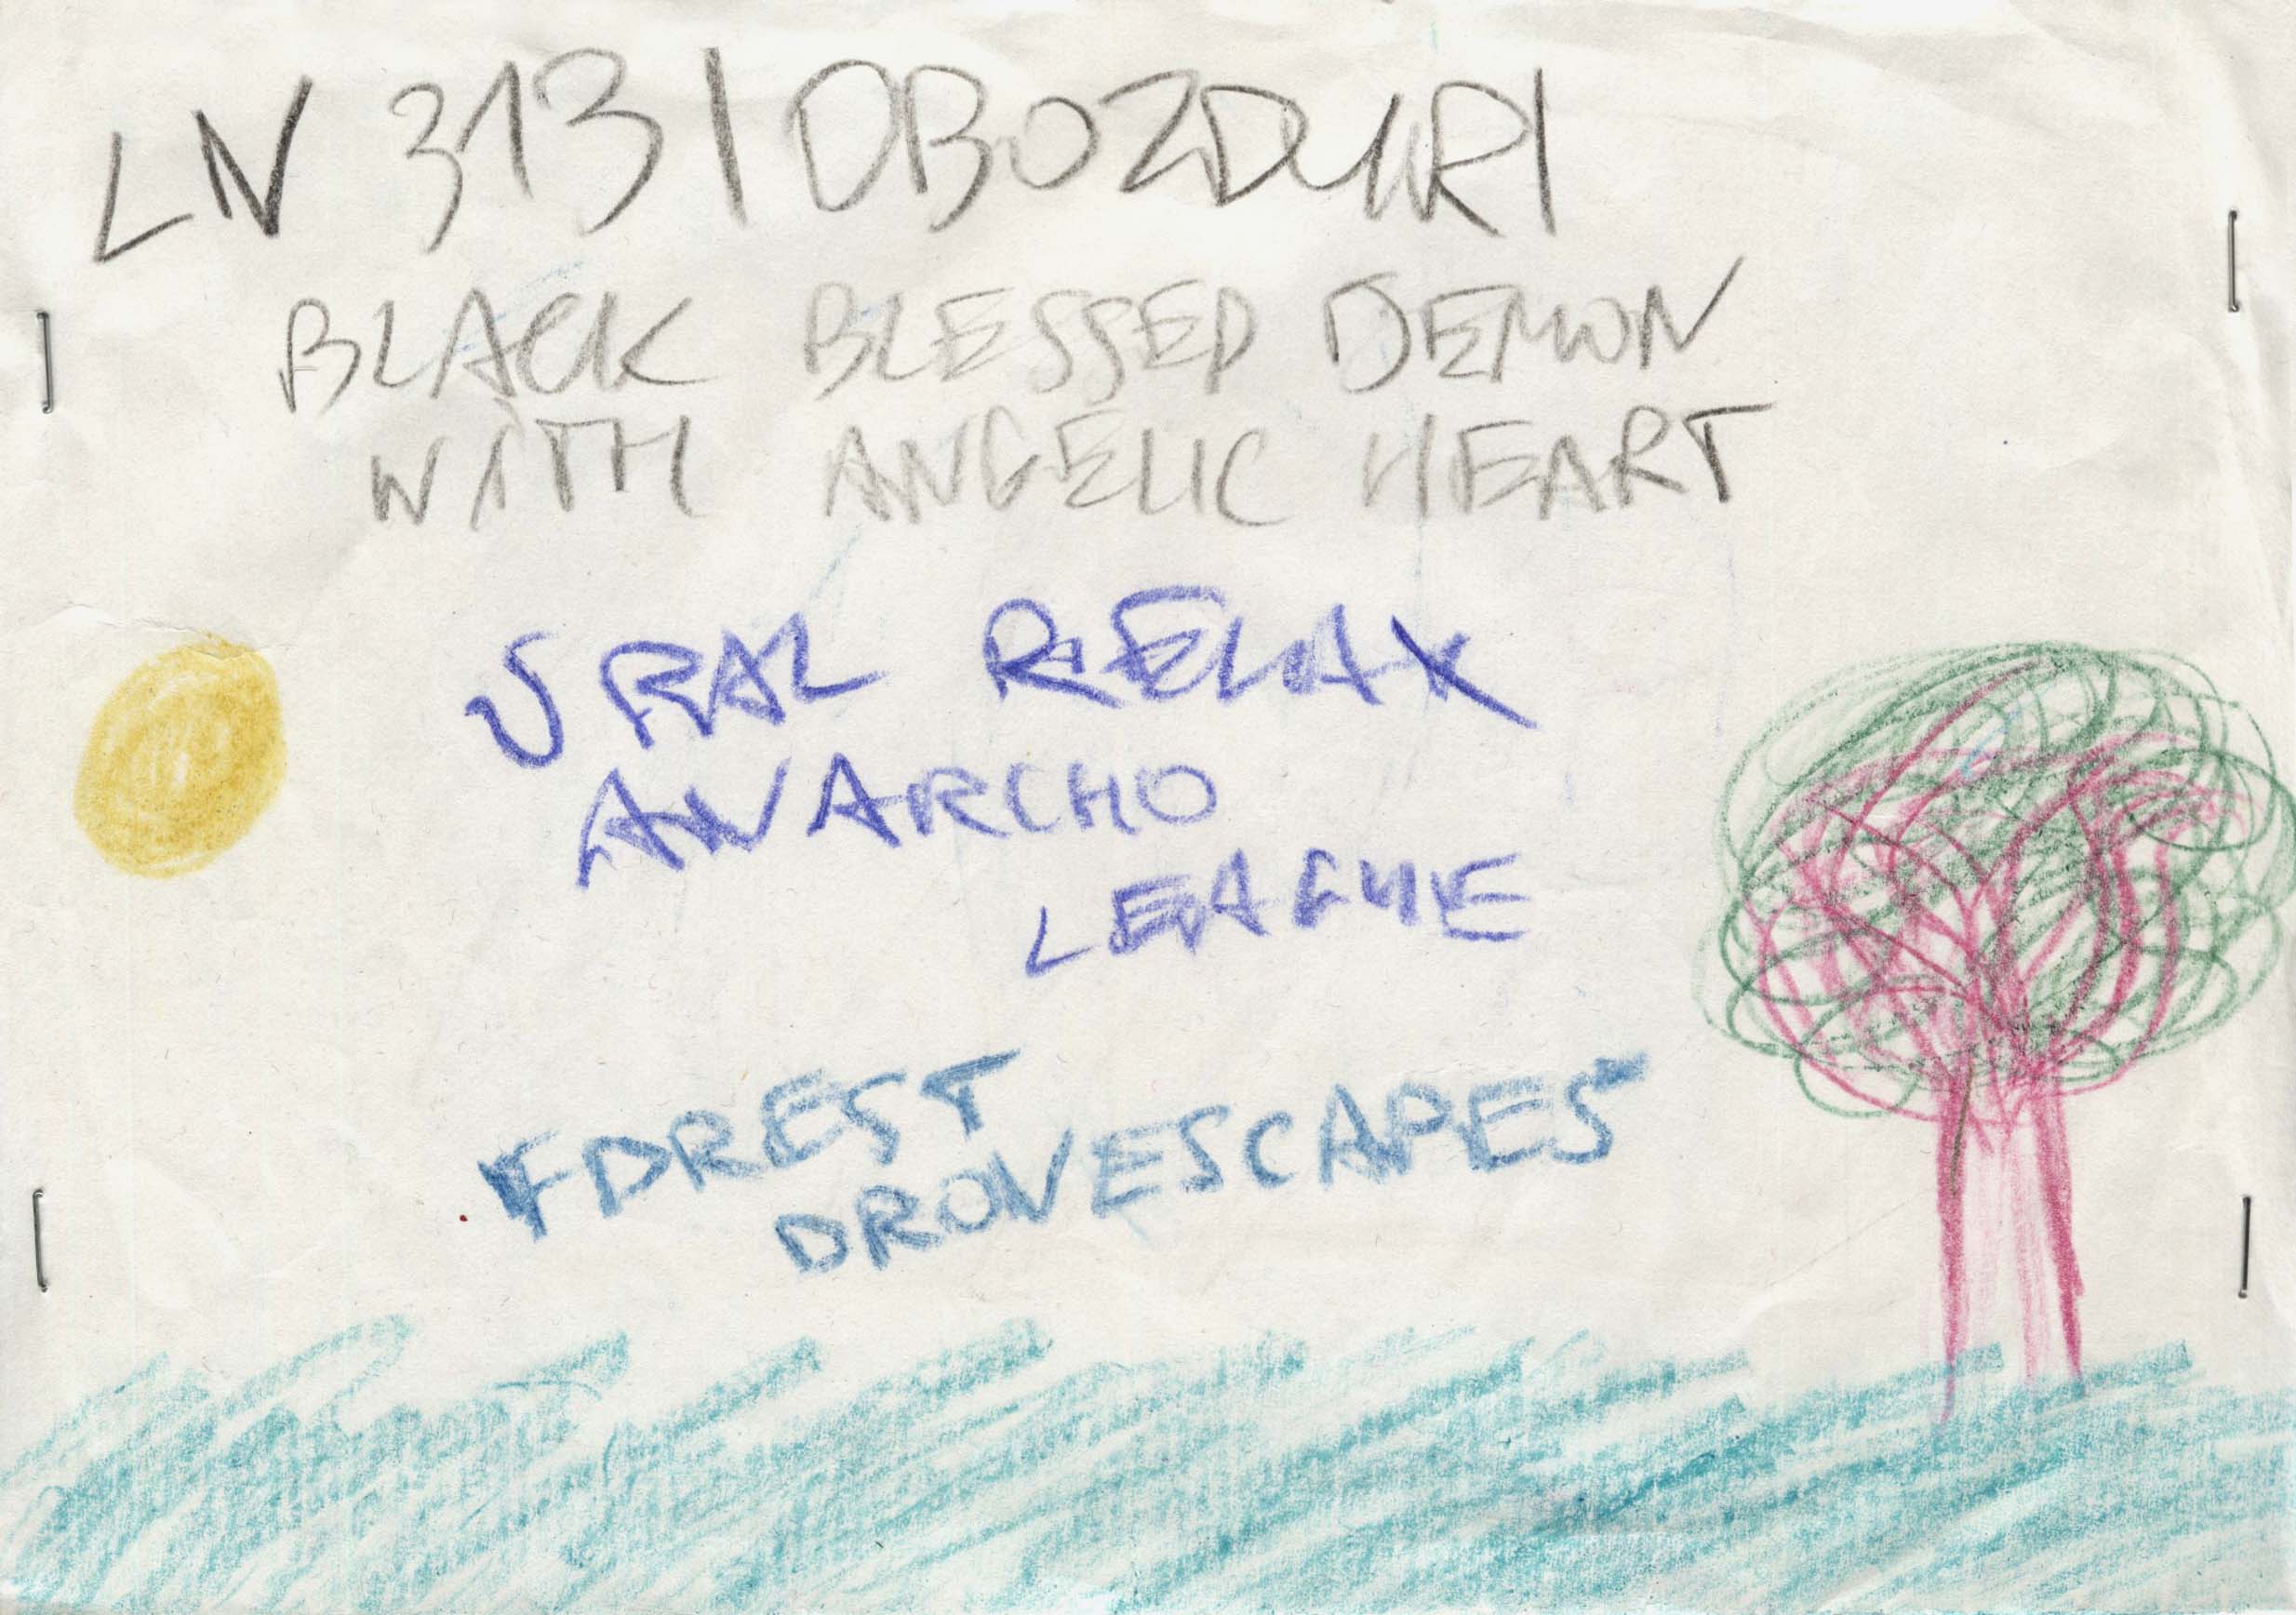 LN 313 | OBOZDUR |
BLACK BLESSED DEMON
WITH ANGELIC HEART
URAL RELAX
ANARCHO
LEAGUE
FOREST
DRONESCAPES